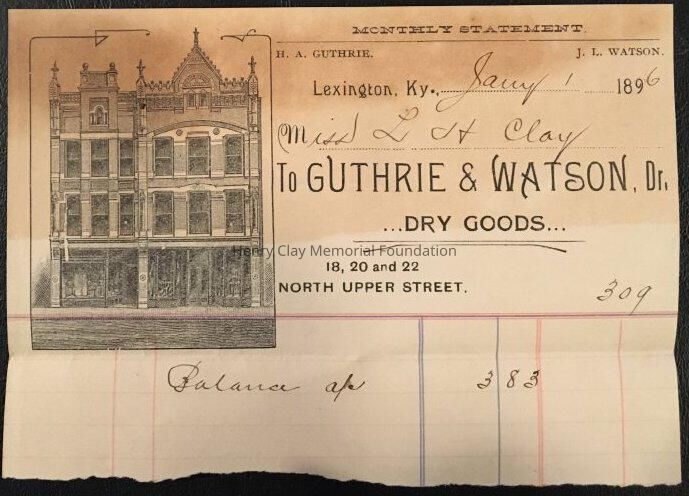 MONTHLY STATEMENT.
H. A. GUTHRIE. J. L. WATSON.
Lexington, Ky., Jany 1 1896
Miss L H Clay
To GUTHRIE & WATSON, Dr.
...DRY GOODS...
Henry Clay Memorial Foundation
18, 20 and 22
NORTH UPPER STREET.
309
Balance a/c 3 83